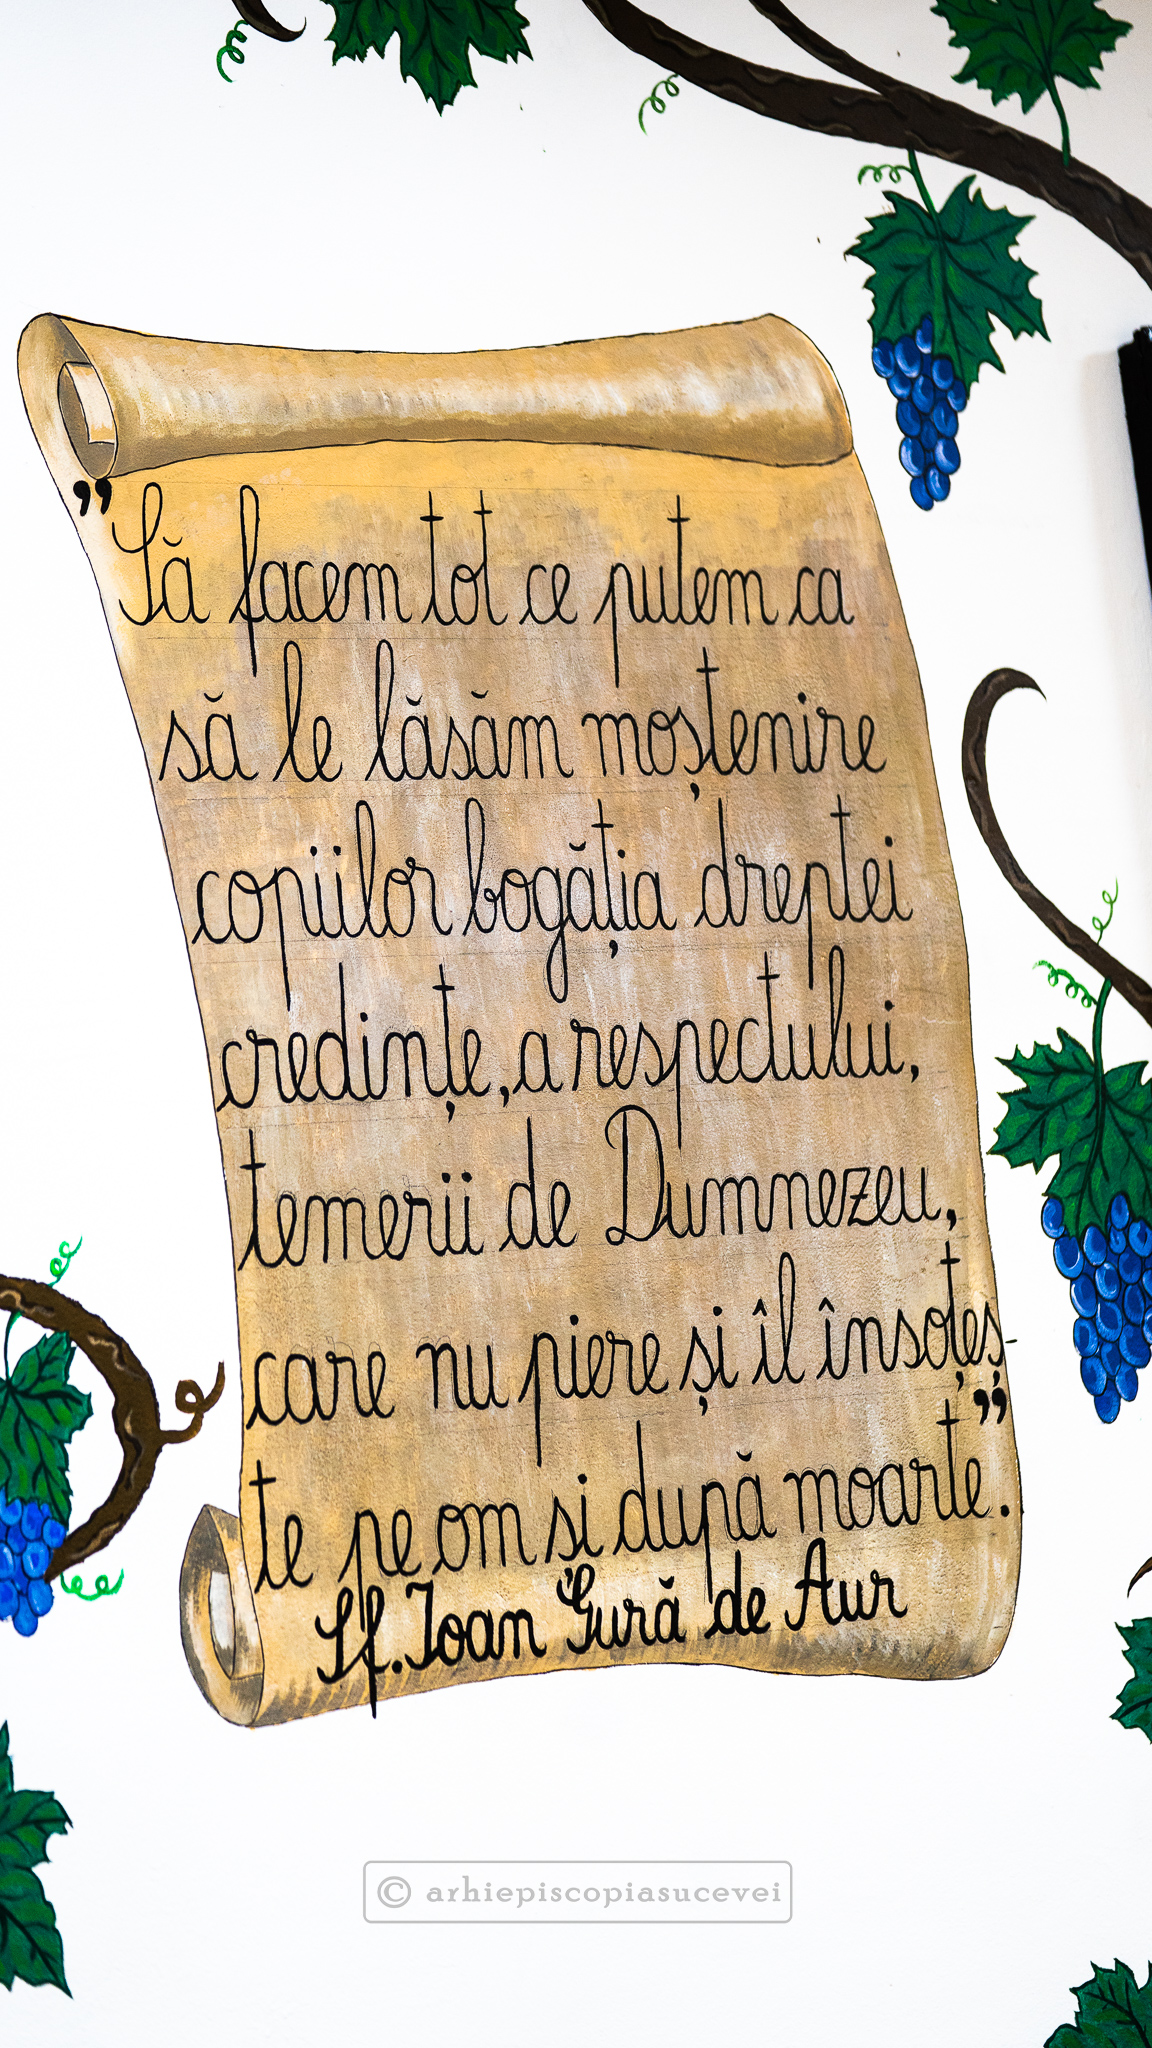 ”Să facem tot ce putem ca
să le lăsăm moștenire
copiilor bogăția dreptei
credințe, a respectului,
temerii de Dumnezeu,
care nu piere și îl însoțeș-
te pe om și după moarte”.
Sf. Ioan Gură de Aur
© arhiepiscopiasucevei